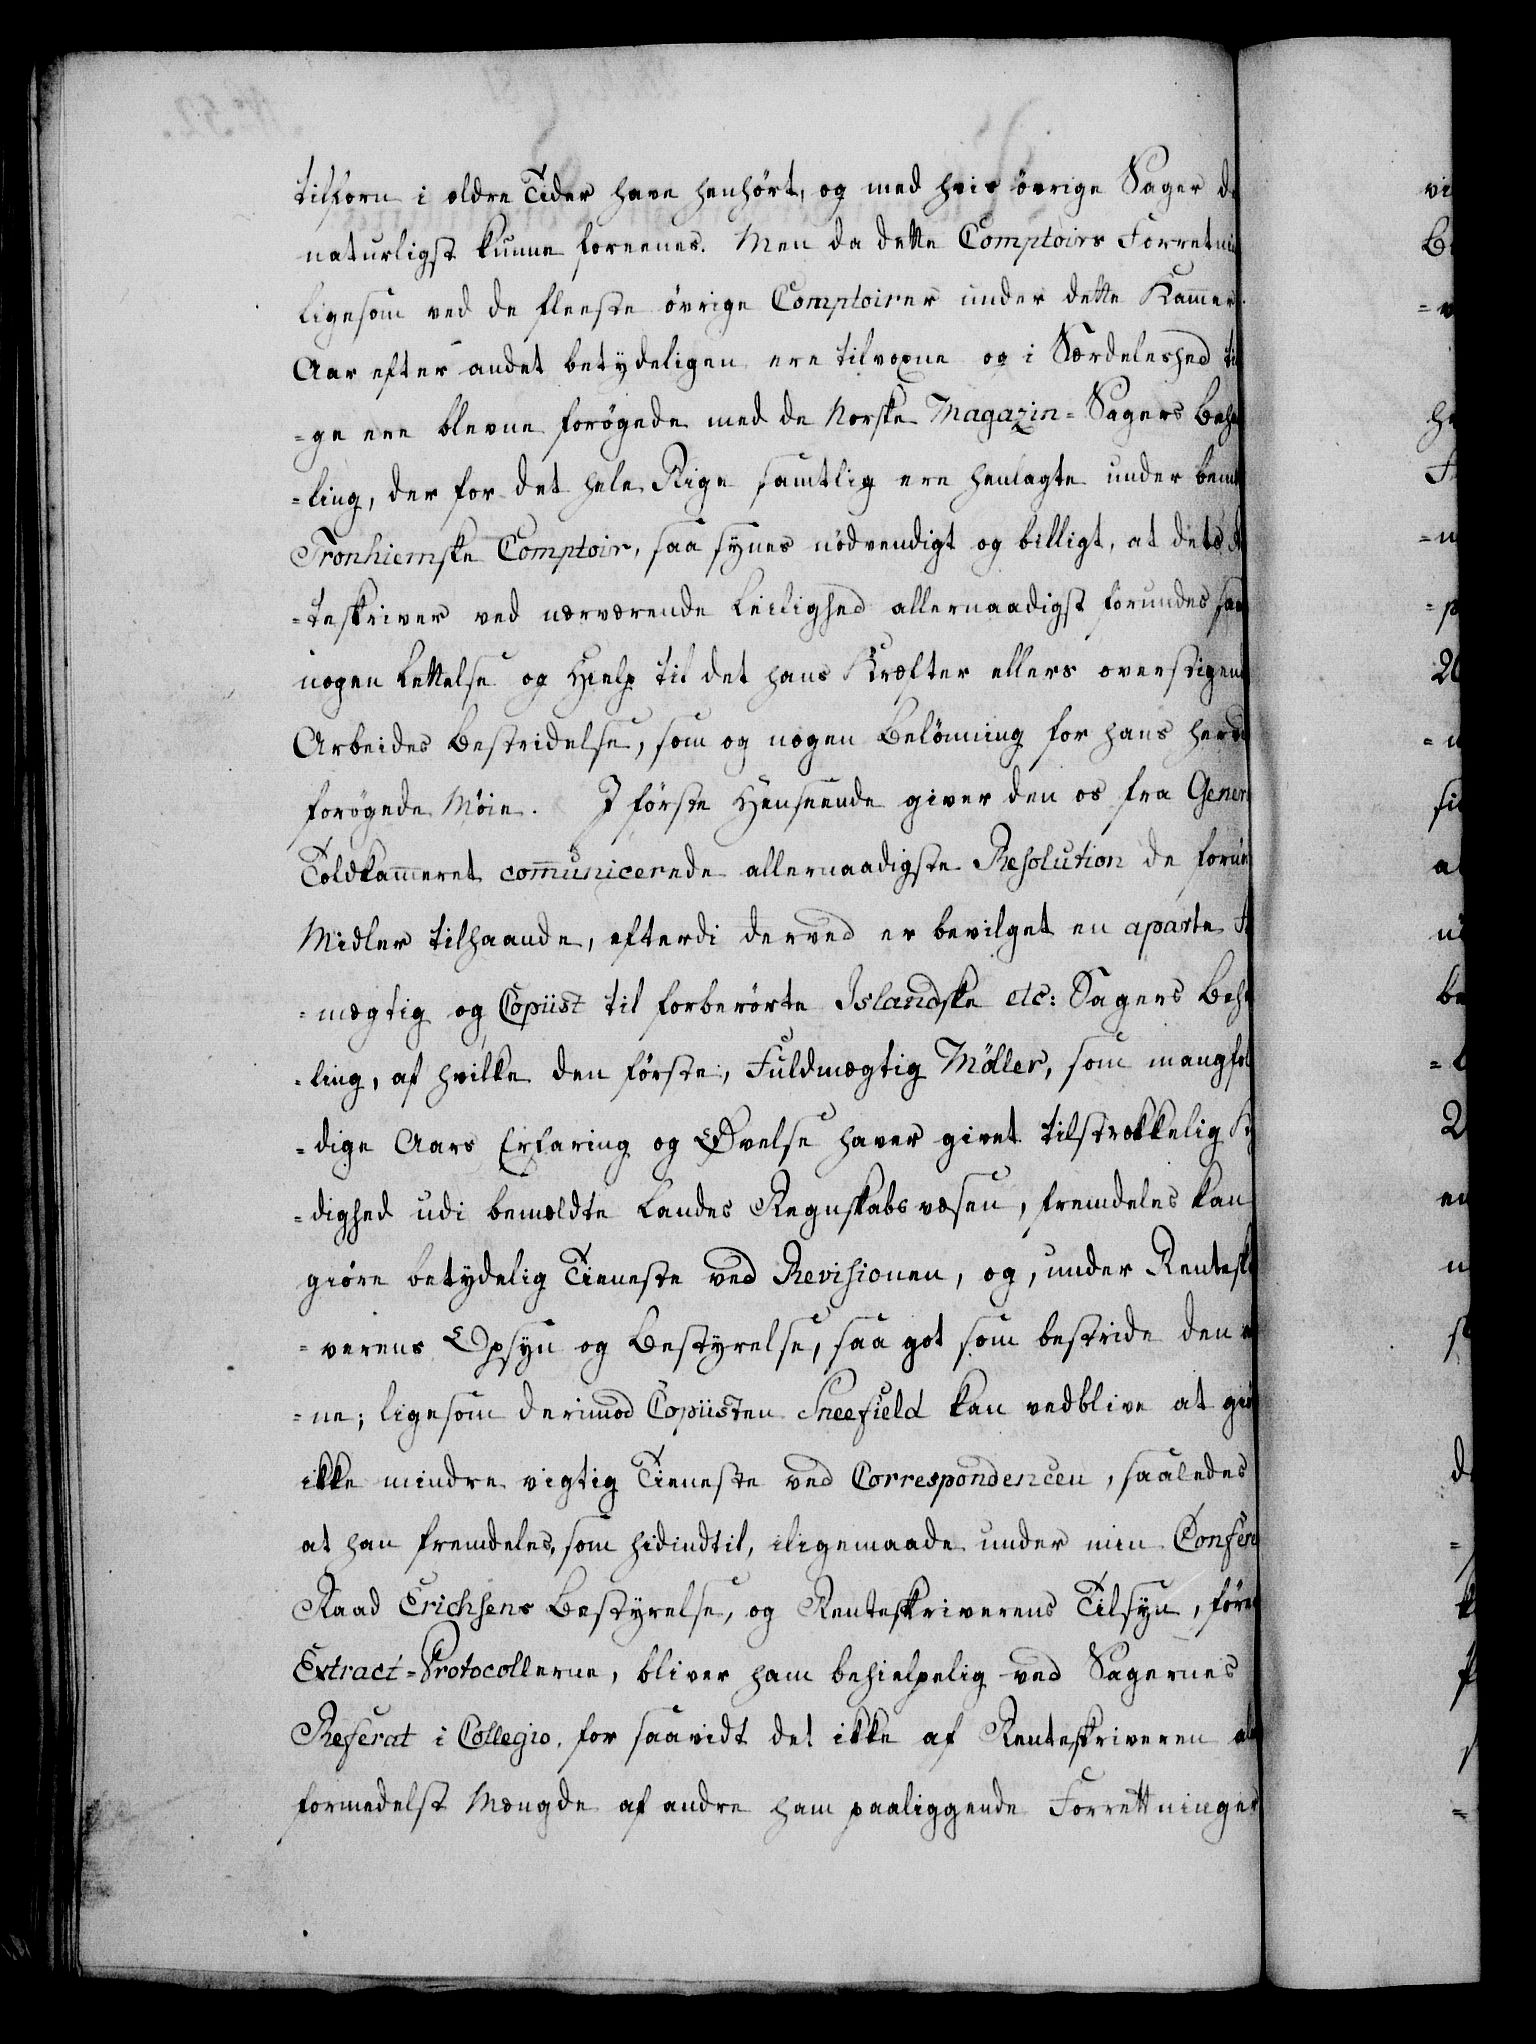 tilforn i ældre Tider have henhørt, og med hvis øvrige Sager de
naturligst kunne foreenes. Men da dette Comptoirs Forretni
ligesom ved de fleeste øvrige Comptoirer under dette Kammer
Aar efter andet betydeligen ere tilvoxne og i Særdeleshed ti
=ge ere blevne forøgede med de Norske Magazin=Sagers Beh
=ling, der for det hele Rige samtlig ere henlagte under bem
Tronhiemske Comptoir, saa synes nødvendigt og billigt, at dets
=teskriver ved nærværende Leilighed allernaadigst forundes saa
nogen Lettelse og Hielp til det hans Kræfter ellers overstigen
Arbeides Bestridelse, som og nogen Belønning for hans her
forøgede Møie. I første Henseende giver den os fra Gener
Toldkammeret communicerede allernaadigste Resolution de forn
Midler tilhaande, efterdi derved er bevilget en aparte F
=mægtig og Copiist til forberørte Islandske etc: Sagers Beh
=ling, af hvilke den første, Fuldmægtig Møller, som mangfol
=dige Aars Erfaring og Øvelse haver givet tilstrækkelig Ky
=dighed udi bemældte Landes Regnskabsvæsen, fremdeles kan
giøre betydelig Tieneste ved Revisionen, og, under Rentesk
=verens Opsyn og Bestyrelse, saa got som bestride den
=ne; ligesom derimod Copiisten Sneefield kan vedblive at giø
ikke mindre vigtig Tieneste ved Correspondencen, saaledes
at han fremdeles, som hidindtil, iligemaade under min Confere
Raad Erichsens Bestyrelse, og Renteskriverens Tilsyn, fører
Extract=Protocollerne, bliver ham behielpelig ved Sagernes
Referat i Collegio, for saavidt det ikke af Renteskriveren
formedelst Mængde af andre ham paaliggende Forrettninger